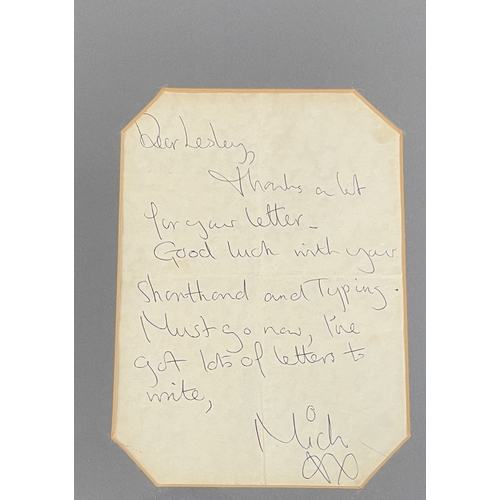 Dear Lesley,
Thanks a lot
for your letter -
Good luck with your
Shorthand and Typing.
Must go now, I've
got lots of letters to
write,
Mick
XXX